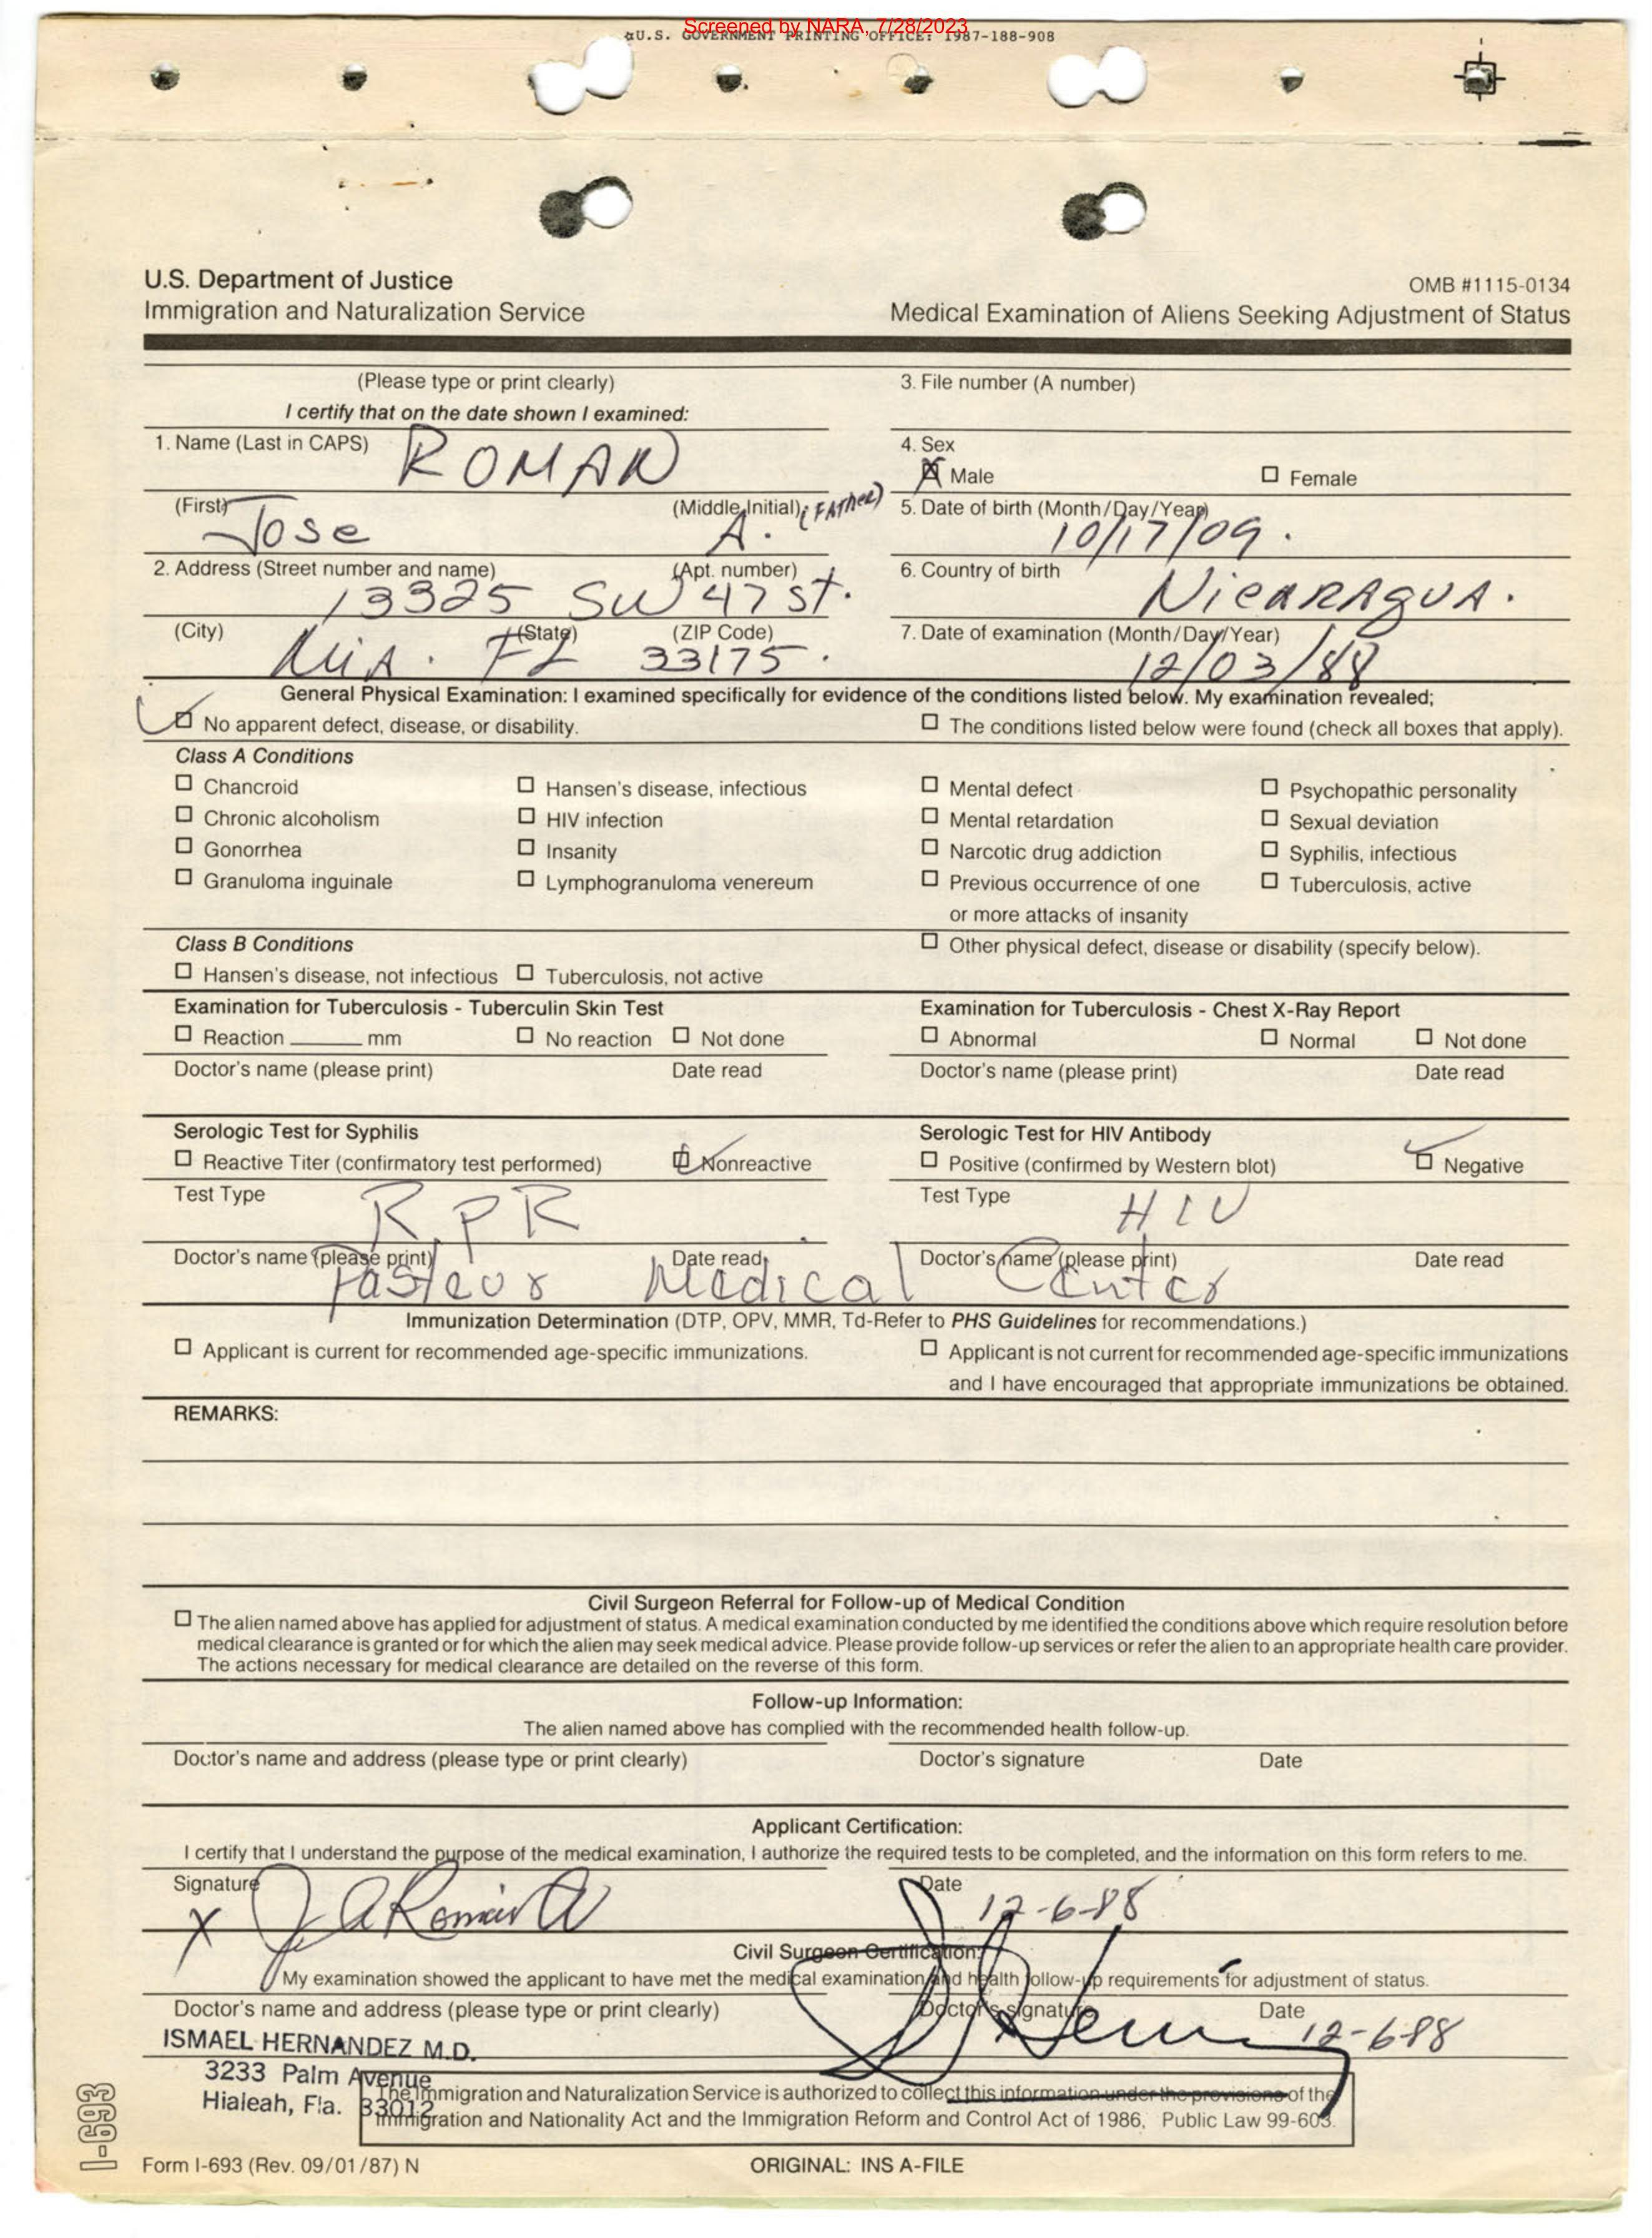 Screened by NARA, 7/28/2023
☆U.S. GOVERNMENT PRINTING OFFICE: 1987-188-908
U.S. Department of Justice
Immigration and Naturalization Service
OMB #1115-0134
Medical Examination of Aliens Seeking Adjustment of Status
(Please type or print clearly)
I certify that on the date shown I examined:
3. File number (A number)
1. Name (Last in CAPS) ROMAN
4. Sex
Male Female
(First) Jose (Middle Initial) A. (FATher)
5. Date of birth (Month/Day/Year) 10/17/09.
2. Address (Street number and name) (Apt. number)
13325 SW 47 St.
6. Country of birth NicARAgUA.
(City) MiA. (State) FL (ZIP Code) 33175.
7. Date of examination (Month/Day/Year) 12/03/88
General Physical Examination: I examined specifically for evidence of the conditions listed below. My examination revealed;
No apparent defect, disease, or disability. The conditions listed below were found (check all boxes that apply).
Class A Conditions
Chancroid Hansen's disease, infectious Mental defect Psychopathic personality
Chronic alcoholism HIV infection Mental retardation Sexual deviation
Gonorrhea Insanity Narcotic drug addiction Syphilis, infectious
Granuloma inguinale Lymphogranuloma venereum Previous occurrence of one Tuberculosis, active
or more attacks of insanity
Class B Conditions Other physical defect, disease or disability (specify below).
Hansen's disease, not infectious Tuberculosis, not active
Examination for Tuberculosis - Tuberculin Skin Test
Reaction ______ mm No reaction Not done
Doctor's name (please print) Date read
Examination for Tuberculosis - Chest X-Ray Report
Abnormal Normal Not done
Doctor's name (please print) Date read
Serologic Test for Syphilis
Reactive Titer (confirmatory test performed) Nonreactive
Test Type RPR
Serologic Test for HIV Antibody
Positive (confirmed by Western blot) Negative
Test Type HIV
Doctor's name (please print) Date read Doctor's name (please print) Date read
Pasteur Medical Center
Immunization Determination (DTP, OPV, MMR, Td-Refer to PHS Guidelines for recommendations.)
Applicant is current for recommended age-specific immunizations.
Applicant is not current for recommended age-specific immunizations
and I have encouraged that appropriate immunizations be obtained.
REMARKS:
Civil Surgeon Referral for Follow-up of Medical Condition
The alien named above has applied for adjustment of status. A medical examination conducted by me identified the conditions above which require resolution before
medical clearance is granted or for which the alien may seek medical advice. Please provide follow-up services or refer the alien to an appropriate health care provider.
The actions necessary for medical clearance are detailed on the reverse of this form.
Follow-up Information:
The alien named above has complied with the recommended health follow-up.
Doctor's name and address (please type or print clearly) Doctor's signature Date
Applicant Certification:
I certify that I understand the purpose of the medical examination, I authorize the required tests to be completed, and the information on this form refers to me.
Signature Date
X 12-6-88
Civil Surgeon Certification:
My examination showed the applicant to have met the medical examination and health follow-up requirements for adjustment of status.
Doctor's name and address (please type or print clearly) Doctor's signature Date
ISMAEL HERNANDEZ M.D. 12-6-88
3233 Palm Avenue
Hialeah, Fla. 33012
The Immigration and Naturalization Service is authorized to collect this information under the provisions of the
Immigration and Nationality Act and the Immigration Reform and Control Act of 1986, Public Law 99-603.
I-693
Form I-693 (Rev. 09/01/87) N
ORIGINAL: INS A-FILE